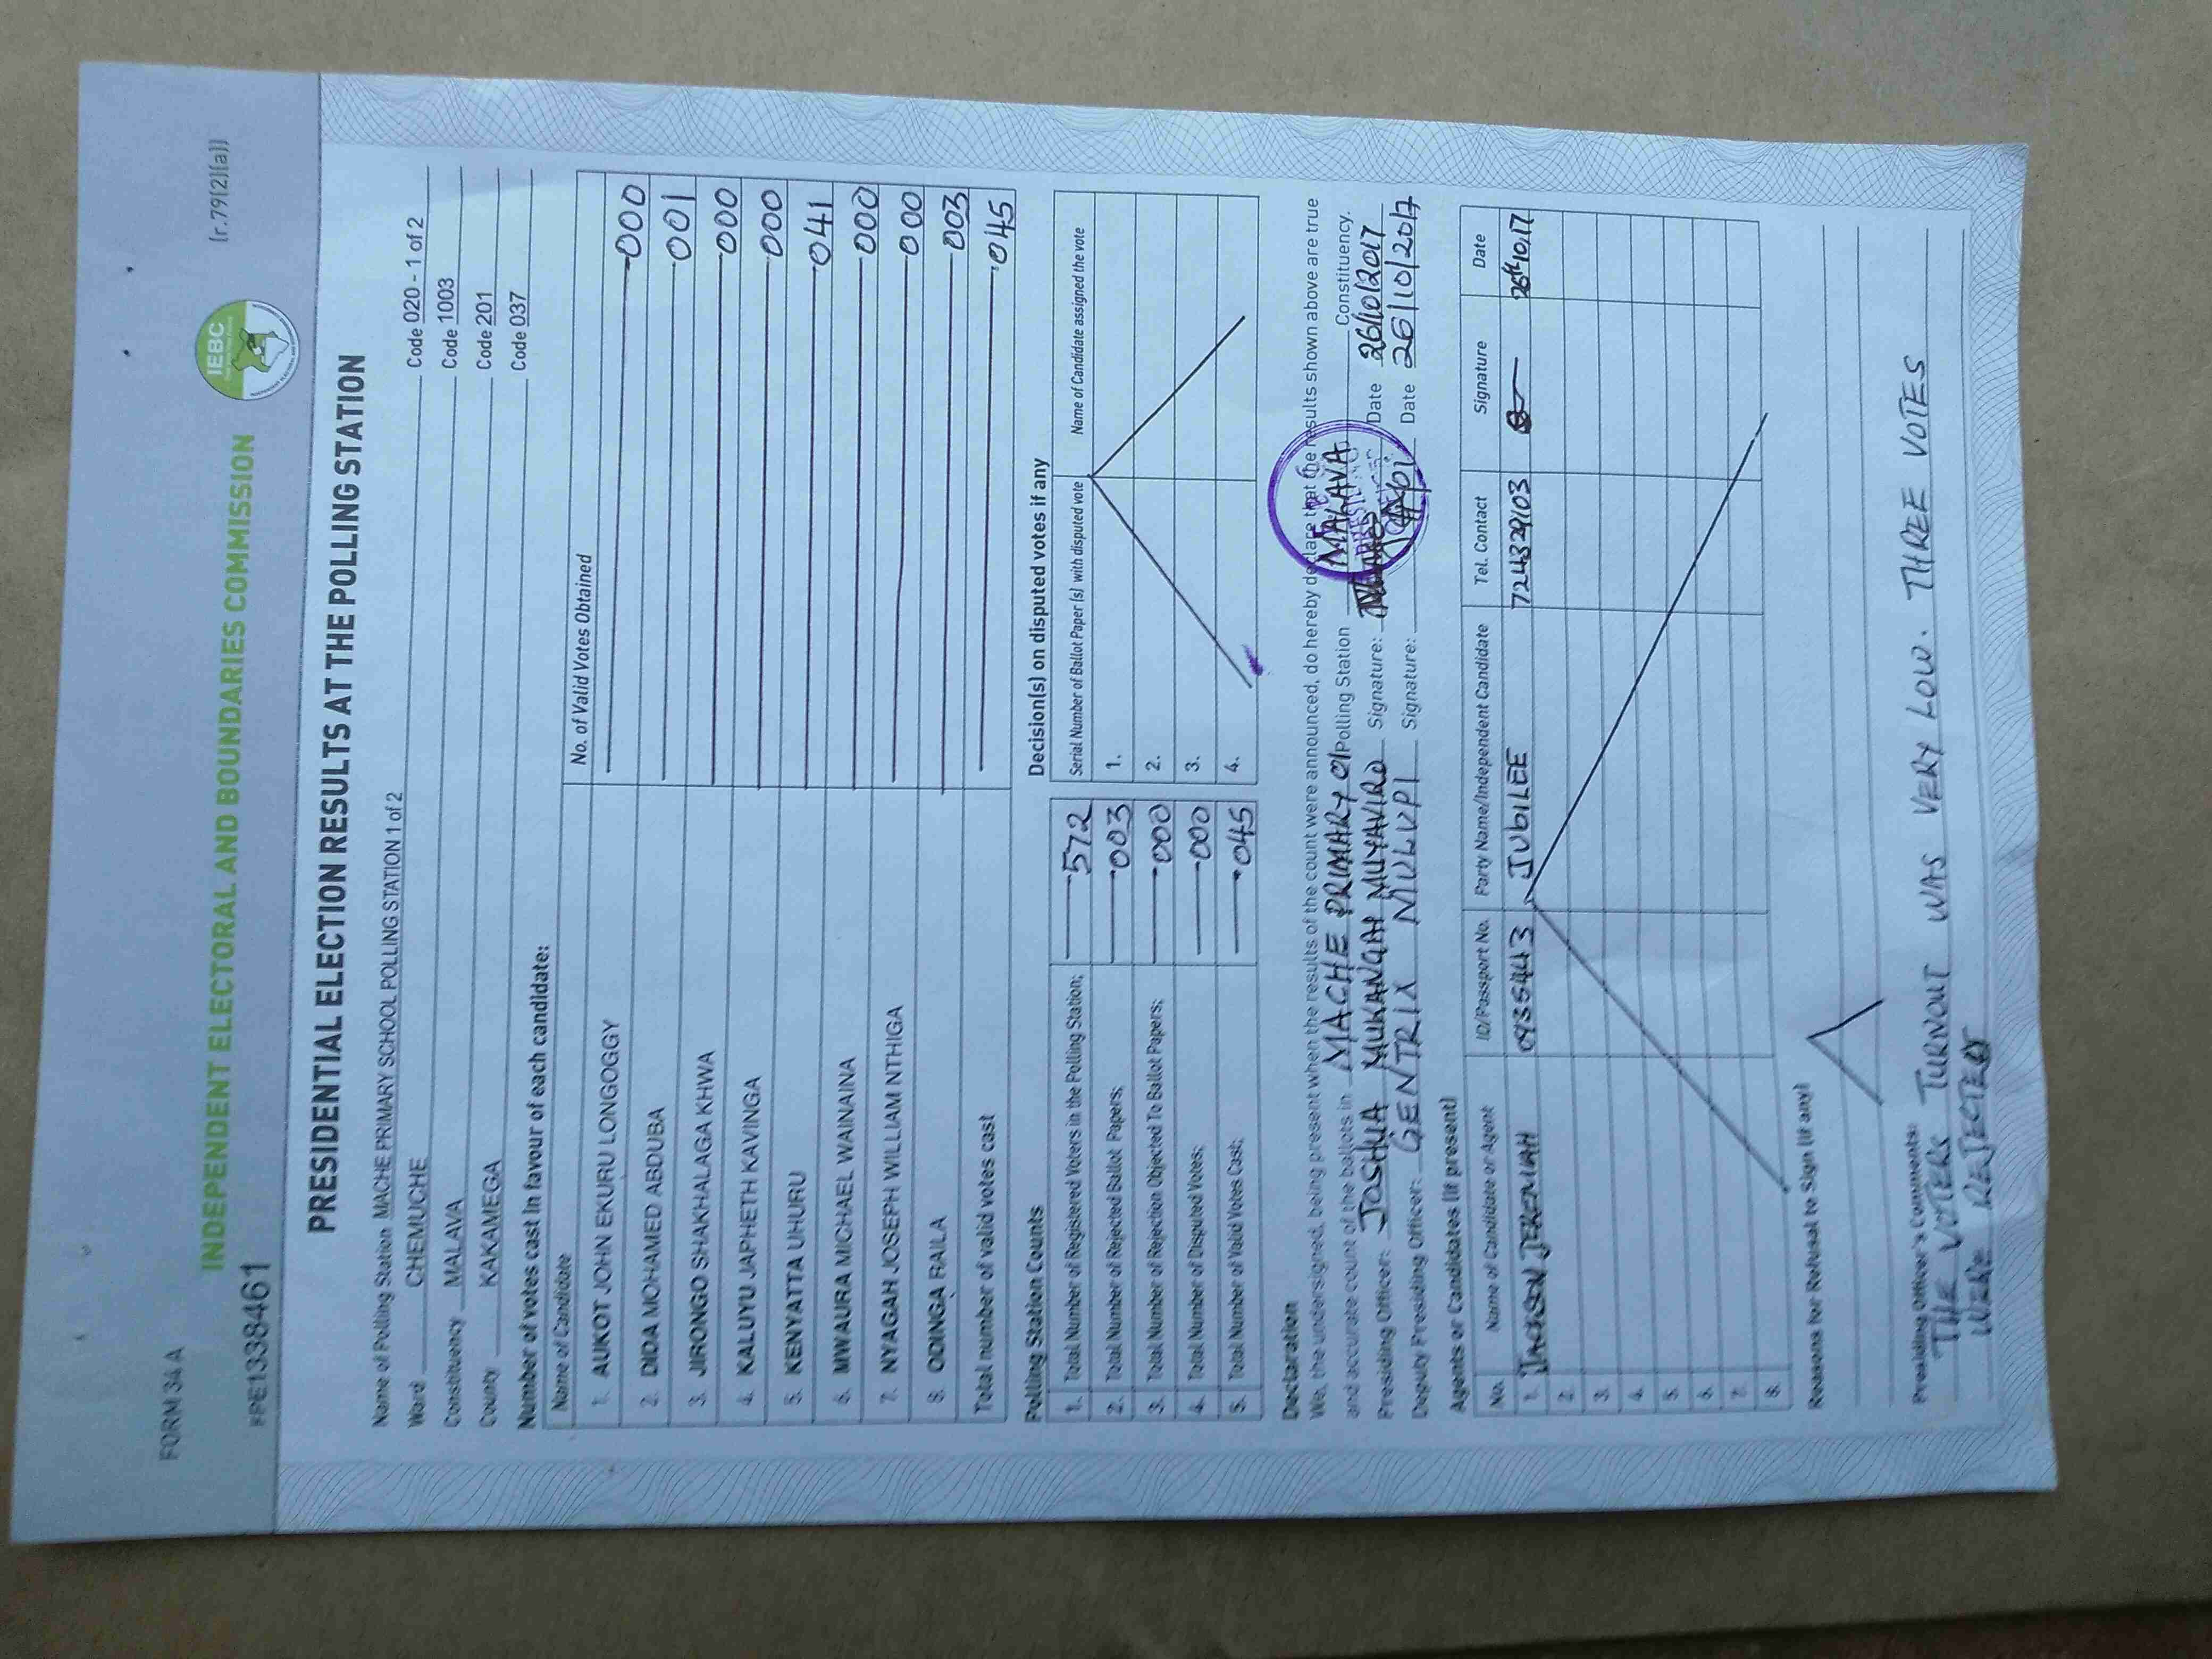 FORM 34 A
(r.79(2)(a))
IEBC
INDEPENDENT ELECTORAL AND BOUNDARIES COMMISSION
PRESIDENTIAL ELECTION RESULTS AT THE POLLING STATION
Name of Polling Station MACHE PRIMARY SCHOOL POLLING STATION 1 of 2 Code 020 - 1 of 2
Ward CHEMUCHE Code 1003
Constituency MALAVA Code 201
County KAKAMEGA Code 037
Number of votes cast in favour of each candidate:
Name of Candidate No. of Valid Votes Obtained
1. AUKOT JOHN EKURU LONGOGGY 000
2. DIDA MOHAMED ABDUBA 001
3. JIRONGO SHAKHALAGA KHWA 000
4. KALUYU JAPHETH KAVINGA 000
5. KENYATTA UHURU 041
6. MWAURA MICHAEL WAINAINA 000
7. NYAGAH JOSEPH WILLIAM NTHIGA 000
8. ODINGA RAILA 003
Total number of valid votes cast 045
Polling Station Counts
1. Total Number of Registered Voters in the Polling Station; 572
2. Total Number of Rejected Ballot Papers; 003
3. Total Number of Rejection Objected To Ballot Papers; 000
4. Total Number of Disputed Votes; 000
5. Total Number of Valid Votes Cast; 045
Decision(s) on disputed votes if any
Serial Number of Ballot Paper (s) with disputed vote Name of Candidate assigned the vote
1.
2.
3.
4.
Declaration
We, the undersigned, being present when the results of the count were announced, do hereby declare that the results shown above are true
and accurate count of the ballots in MACHE PRIMARY Polling Station MALAVA Constituency.
Presiding Officer: JOSHUA Signature: Date 26/10/2017
Deputy Presiding Officer: GENTRIX MULUPI Signature: Date 26/10/2017
Agents or Candidates (if present)
No. Name of Candidate or Agent ID/Passport No. Party Name/Independent Candidate Tel. Contact Signature Date
1. JACKSON JEREMIAH 0935443 JUBILEE 724329103 26th10,17
2.
3.
4.
5.
6.
7.
8.
Reasons for Refusal to Sign (if any)
Presiding Officer's Comments:
THE VOTERS TURNOUT WAS VERY LOW. THREE VOTES
WERE REJECTED